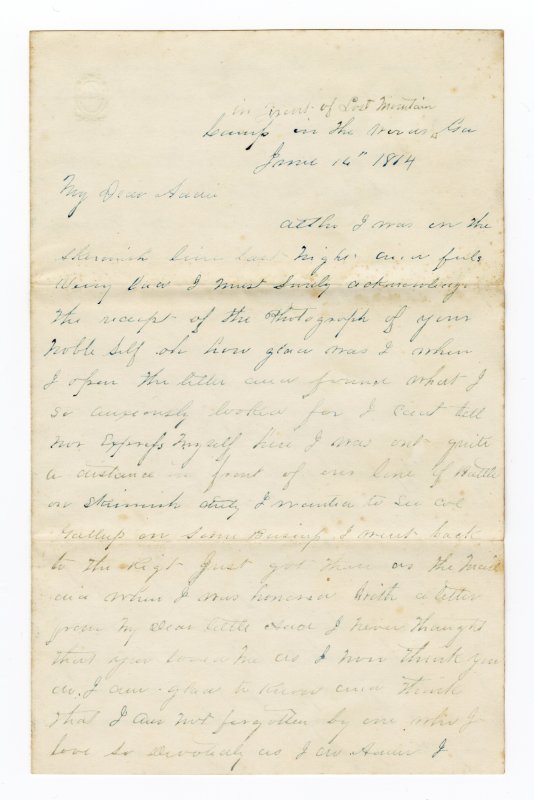 in front of Lost Mountain
Camp in the woods Ga
June 16" 1864
My Dear Addie
altho I was on the
skirmish line last night and feel
very bad I must surely acknowledge
the receipt of the Photograph of your
noble self oh how glad was I when
I open the letter and found what I
so anxiously looked for I cant tell
nor Express myself how I was out quite
a distance in front of our line of Battle
on skirmish duty I wanted to see Col
Gallup on some Busines I went back
to the Rigt Just got there as the Mail
did when I was honored with a letter
from my dear little Addie I never thought
that you loved me as I now think you
do. I am glad to know and think
that I am not forgotten by one who I
love so devotedly as I do Addie I